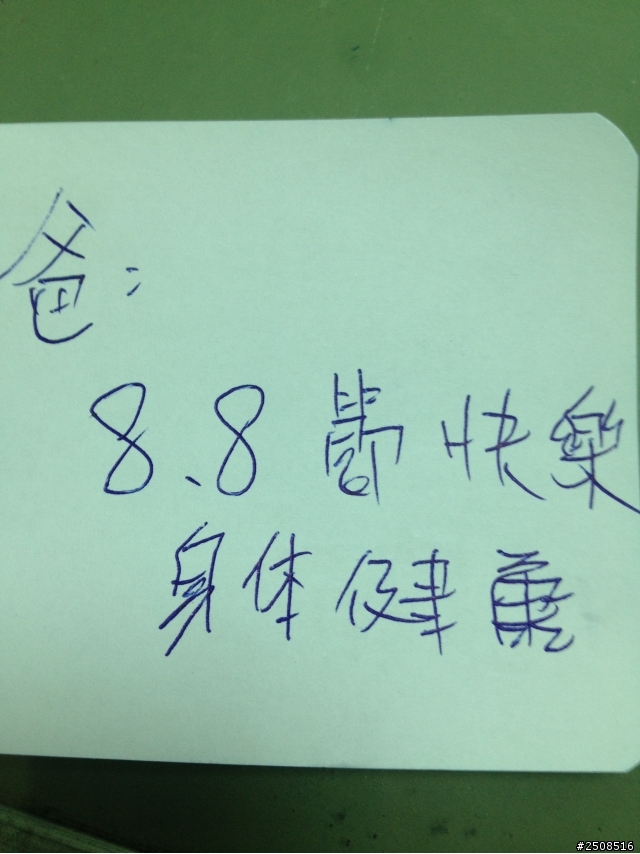 爸:
8、8節快樂
身体健康
#2508516